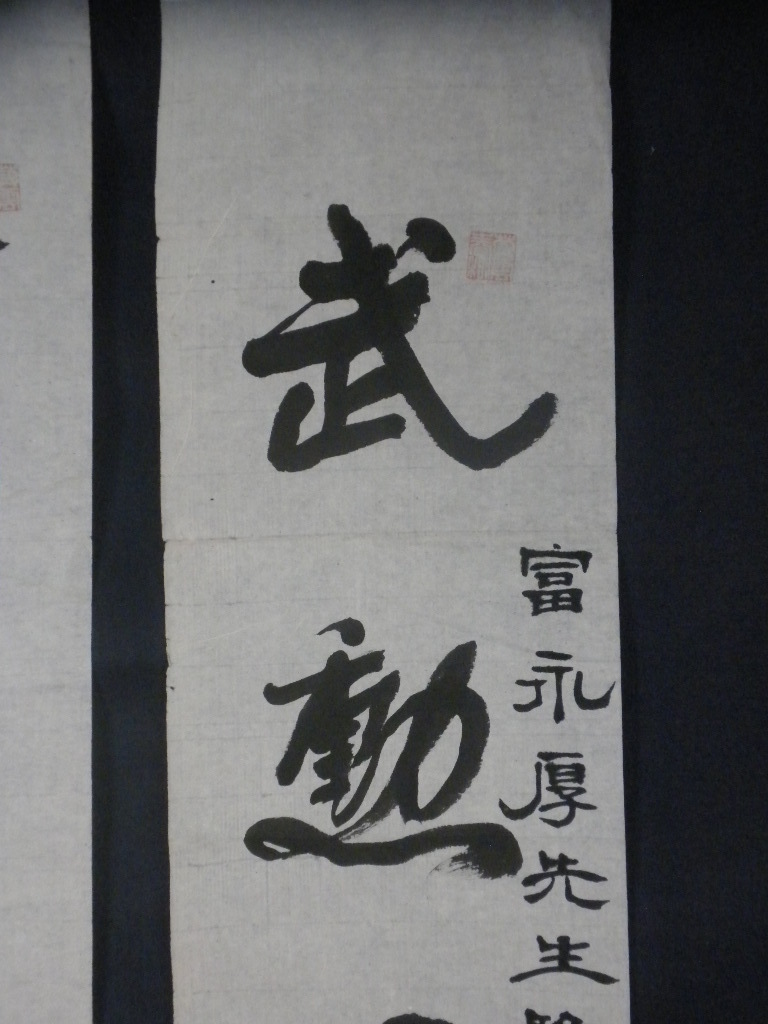 武勳
富永厚先生